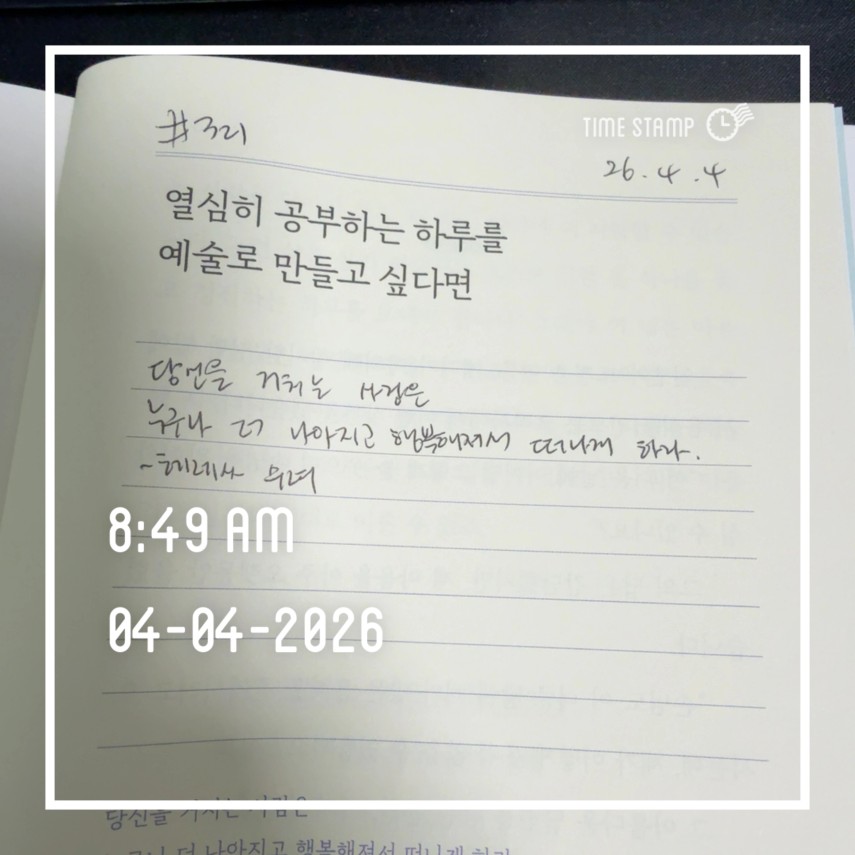 #321
TIME STAMP
26.4.4
열심히 공부하는 하루를
예술로 만들고 싶다면
당신을 거쳐는 사람은
누구나 더 나아지고 행복해져서 떠나게 하라.
-테레사 수녀
8:49 AM
04-04-2026
당신을 거치는 사람은
누구나 더 나아지고 행복해져서 떠나게 하라